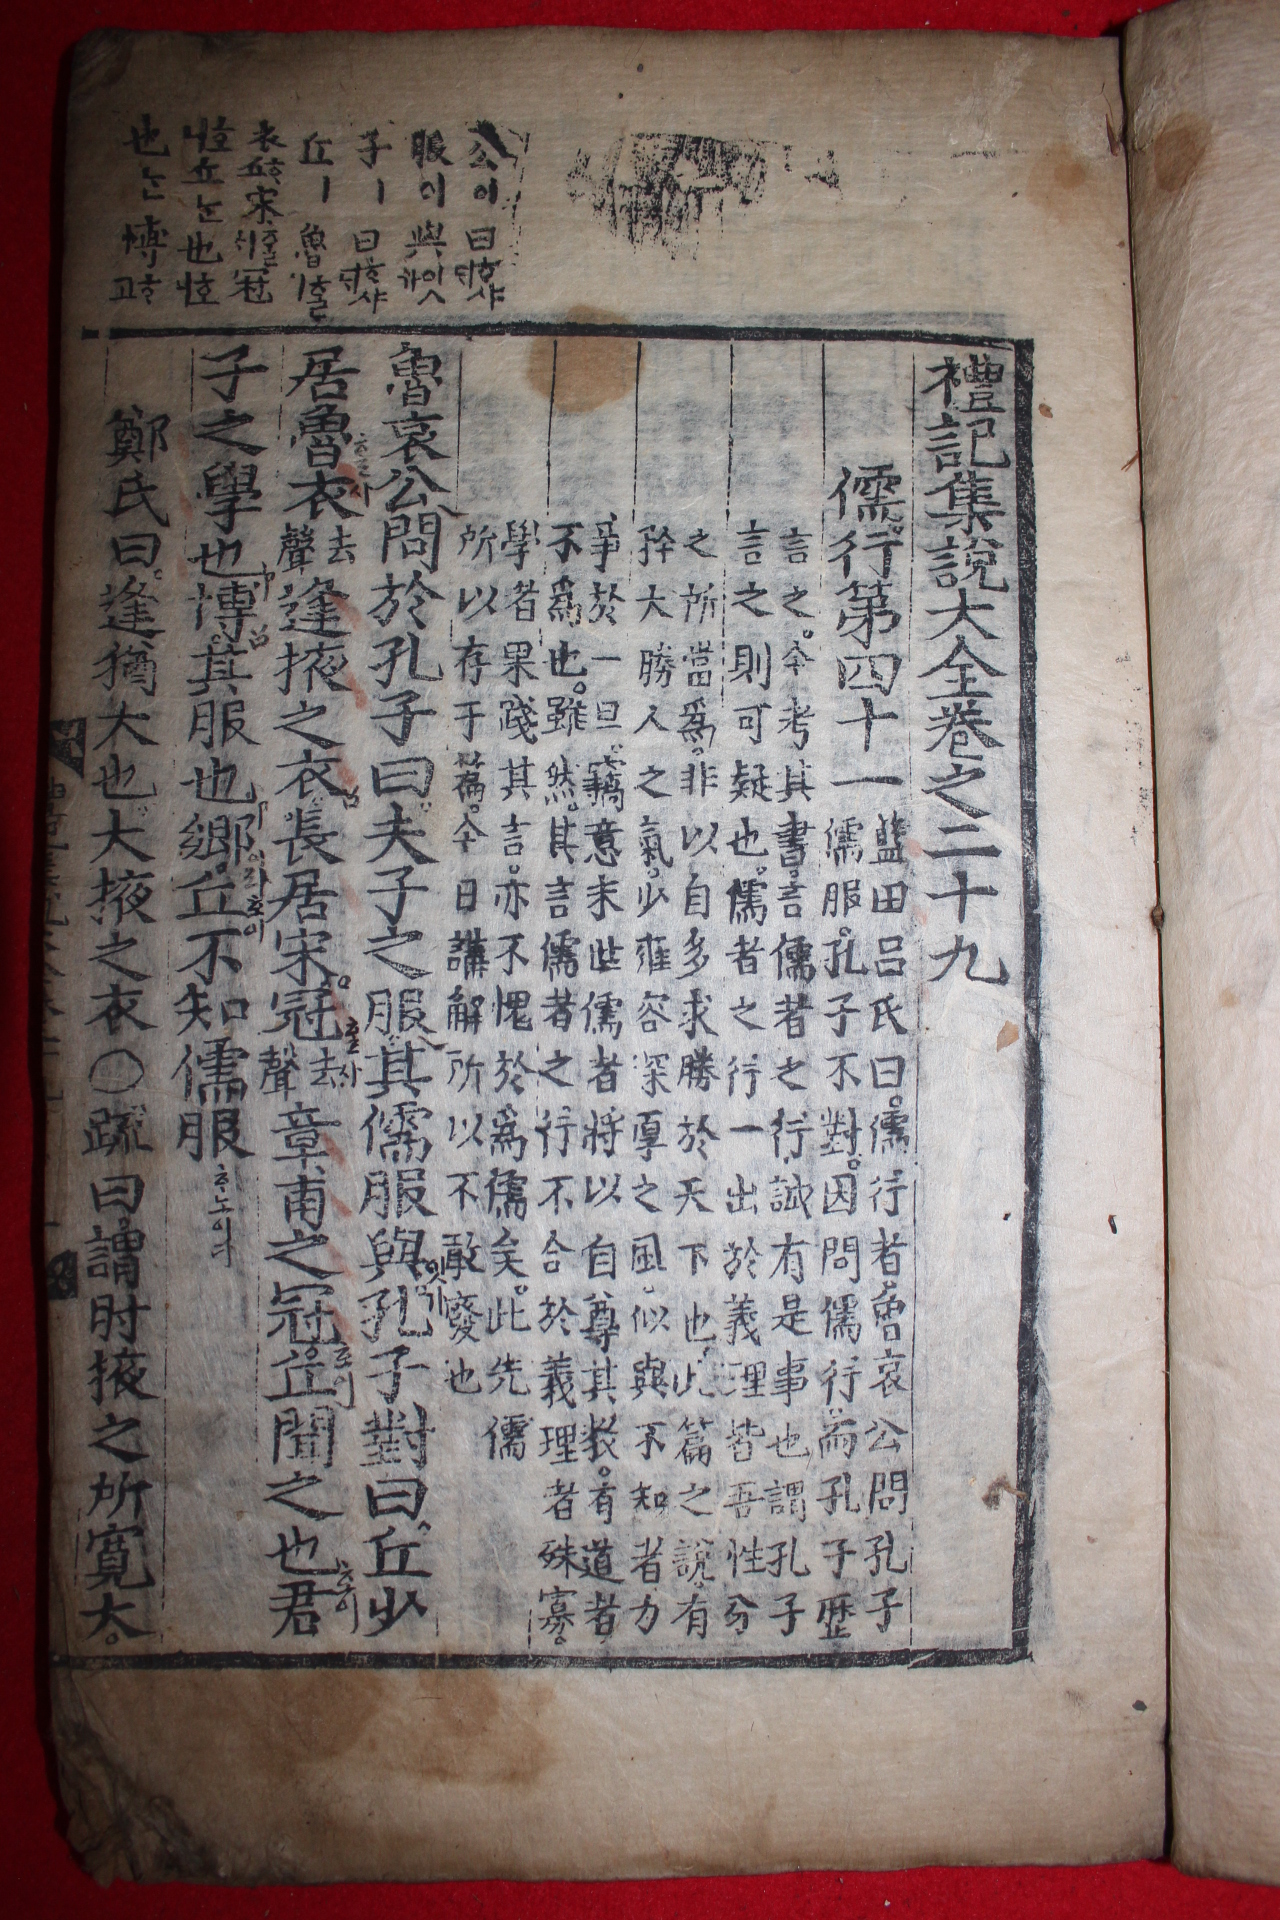 公이曰
服이與
子ㅣ曰
丘ㅣ魯
衣宋冠
也
也는博고
禮記集說大全卷之二十九
儒行第四十一
藍田呂氏曰儒行者魯哀公問孔子
儒服孔子不對因問儒行而孔子歷
言之今考其書言儒者之行誠有是事也謂孔子
言之則可疑也儒者之行一出於義理皆吾性分
之所當爲非以自多求勝於天下也此篇之說有
矜大勝人之氣少雍容深厚之風似與不知者力
爭於一旦竊意末世儒者將以自尊其教有道者
不爲也雖然其言儒者之行不合於義理者殊寡
學者果踐其言亦不愧於爲儒矣此先儒
所以存于篇今日講解所以不敢廢也
魯哀公問於孔子曰夫子之服其儒服與孔子對曰丘少
居魯衣去聲逢掖之衣長居宋冠去聲章甫之冠丘聞之也君
子之學也博其服也鄉丘不知儒服
鄭氏曰逢猶大也大掖之衣○疏曰謂肘掖之所寬大